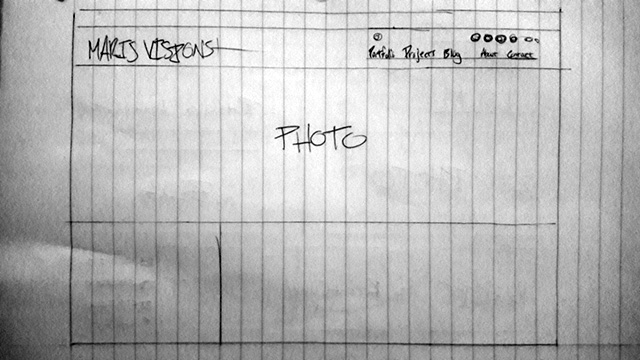 MARIS VISIONS
Portfolio Projects Blog About Contact
PHOTO